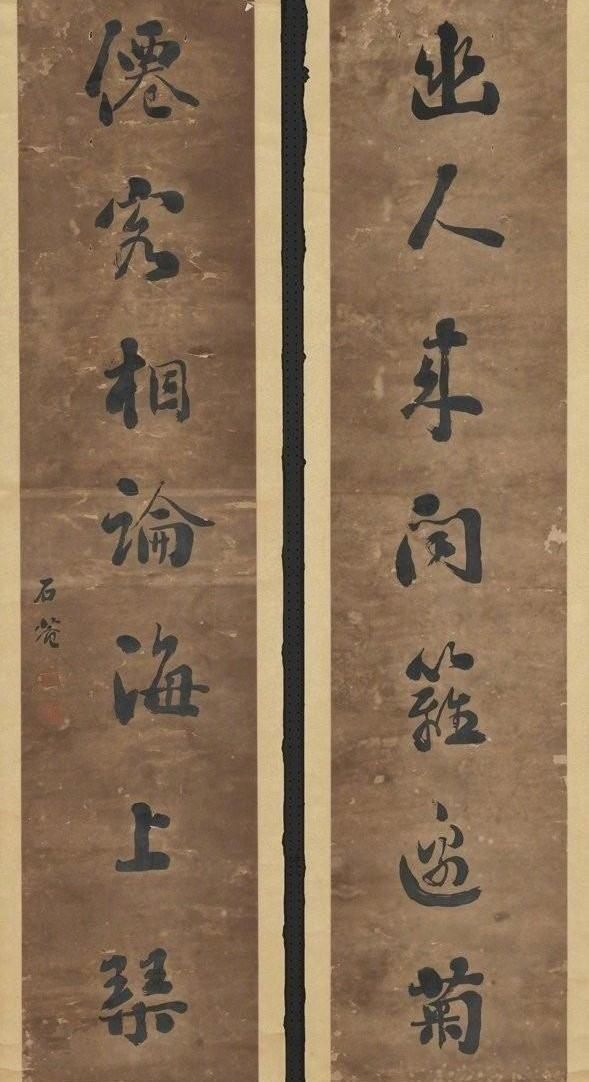 幽人來問籬邊菊
僊客相論海上琴
石菴